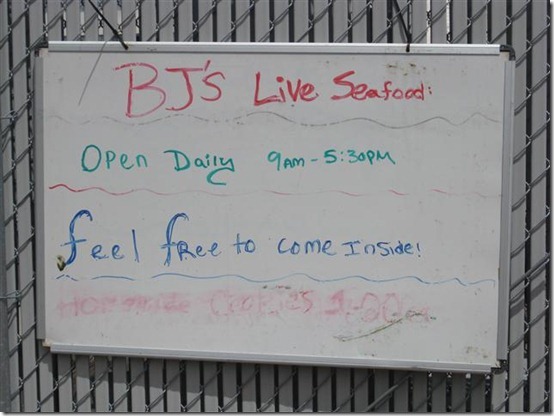 BJ's Live Seafood:
Open Daily 9AM - 5:30PM
feel free to come Inside!
Cookies